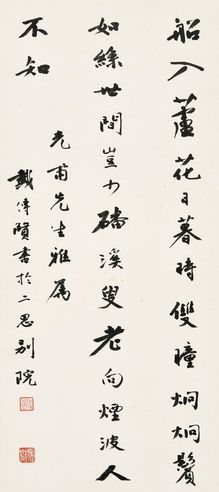 船入蘆花日暮時雙瞳炯炯鬢
如絲世間豈少磻溪叟老向煙波人
不知
元甫先生雅屬
戴傳賢書於二思別院